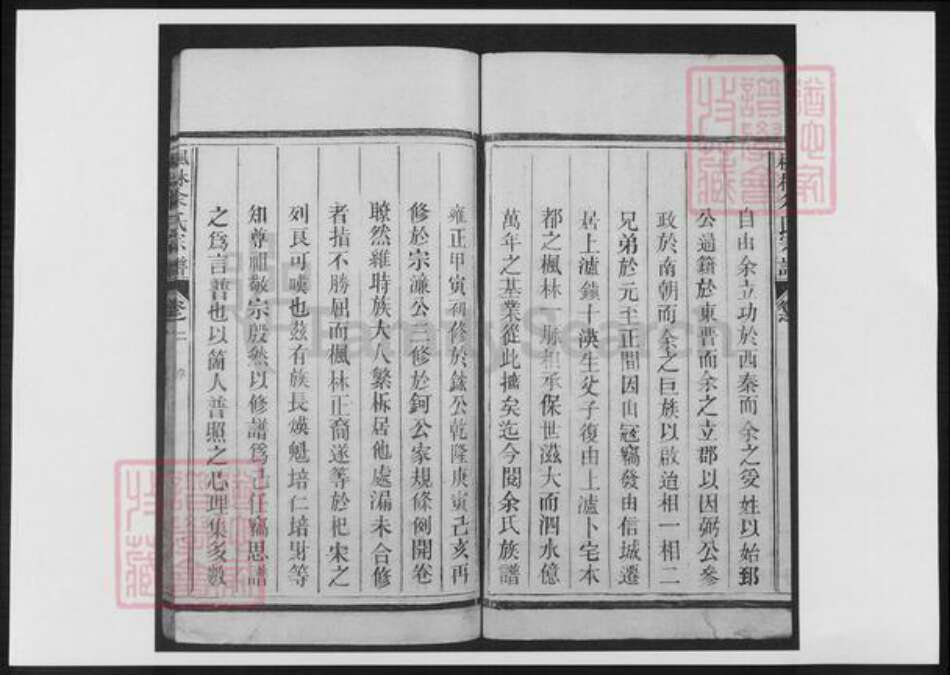 自由余立功於西秦而余之受姓以始郅
公過籍於東晋而余之立郡以因弼公參
政於南朝而余之巨族以啟迨相一相二
兄弟於元至正間因山寇竊發由信城遷
居上瀘鎮十渶生父子復由上瀘卜宅本
都之楓林一脉相承保世滋大而泗水億
萬年之基業從此擴矣迄今閱余氏族譜
雍正甲寅初修於鉉公乾隆庚寅己亥再
修於宗濂公三修於鈳公家規條例開卷
瞭然維時族大人繁柝居他處漏未合修
者指不勝屈而楓林正裔遂等於杞宋之
列良可嘆也兹有族長煐魁培仁培財等
知尊祖敬宗殷然以修譜爲己任竊思譜
之爲言普也以箇人普照之心理集多數
楓林余氏宗譜
卷之一
FamilySearch